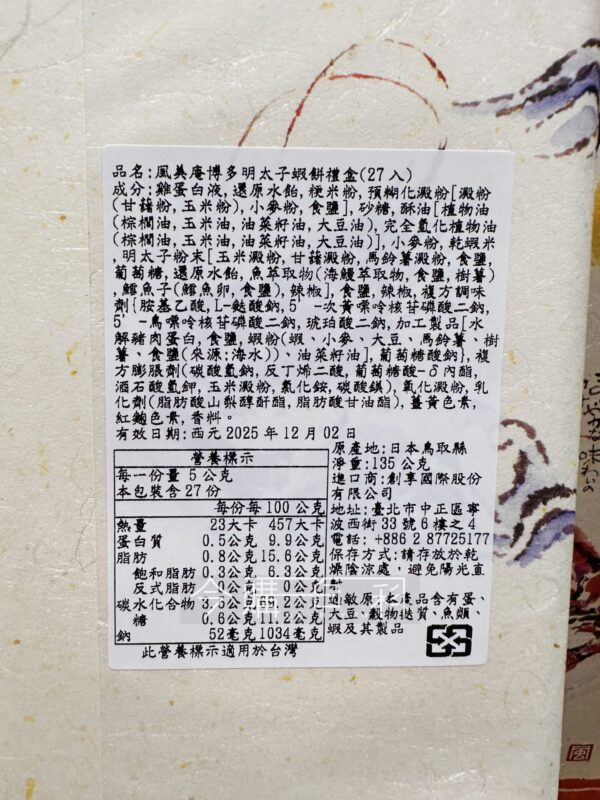 品名:風美庵博多明太子蝦餅禮盒(27入)
成分:雞蛋白液,還原水飴,粳米粉,預糊化澱粉[澱粉
(甘藷粉,玉米粉),小麥粉,食鹽],砂糖,酥油[植物油
(棕櫚油,玉米油,油菜籽油,大豆油),完全氫化植物油
(棕櫚油,玉米油,油菜籽油,大豆油)],小麥粉,乾蝦米
,明太子粉末[玉米澱粉,甘藷澱粉,馬鈴薯澱粉,食鹽,
葡萄糖,還原水飴,魚萃取物(海鰻萃取物,食鹽,樹薯)
,鱈魚子(鱈魚卵,食鹽),辣椒],食鹽,辣椒,複方調味
劑{胺基乙酸,L-麩酸鈉,5'-次黃嘌呤核苷磷酸二鈉,
5'-鳥嘌呤核苷磷酸二鈉,琥珀酸二鈉,加工製品[水
解豬肉蛋白,食鹽,蝦粉(蝦、小麥、大豆、馬鈴薯、樹
薯、食鹽(來源:海水))、油菜籽油],葡萄糖酸鈉},複
方膨脹劑(碳酸氫鈉,反丁烯二酸,葡萄糖酸-δ內酯,
酒石酸氫鉀,玉米澱粉,氯化銨,碳酸鎂),氧化澱粉,乳
化劑(脂肪酸山梨醇酐酯,脂肪酸甘油酯),薑黃色素,
紅麴色素,香料。
有效日期:西元 2025 年 12 月 02 日
營養標示
每一份量 5 公克
本包裝含 27 份
每份每 100 公克
熱量 23大卡 457大卡
蛋白質 0.5公克 9.9公克
脂肪 0.8公克 15.6公克
飽和脂肪 0.3公克 6.3公克
反式脂肪 0公克 0公克
碳水化合物 公克 公克
糖 0.6公克 11.2公克
鈉 52毫克 1034毫克
此營養標示適用於台灣
原產地:日本鳥取縣
淨重:135 公克
進口商:創享國際股份
有限公司
地址:臺北市中正區寧
波西街 33 號 6 樓之 4
電話: +886 2 87725177
保存方式:請存放於乾
燥陰涼處,避免陽光直
過敏原:本產品含有蛋、
大豆、穀物麩質、魚類、
蝦及其製品